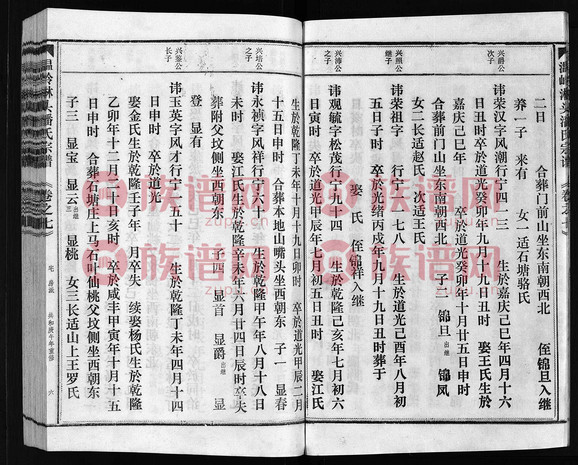 温岭淋头潘氏宗谱
卷之七
二日 合葬门前山坐东朝西北 侄锦旦入继
养一子 来有 女一适石塘骆氏
兴爵公次子
讳宗宋字凤潮行宁一四二三 生於嘉庆己巳年四月十六
日申时 卒於道光癸卯年九月十九日丑时 娶王氏生於
嘉庆己巳年 卒於道光癸卯年十月廿五日申时
合葬前门山坐东南朝西北 子二 锦旦出继 锦凤
女二长适赵氏 次适王氏
兴照公继子
讳荣祖字 行宁一七八 生於乾隆己亥年八月初
五日子时 卒於道光丙戌年十月十九日丑时葬于
娶 氏 侄锦祥入继
兴沛公之子
讳观毓字松茂行宁九四 生於乾隆己亥年七月初六
日寅时 卒於道光甲辰年七月初五日丑时 娶江氏
生於乾隆丁未年十月十日卯时 卒於道光甲辰二月
十五日申时 合葬本地山嘴头坐西朝东 子一 显春
兴培公之子
讳永祯字风祥行宁六十一 生於乾隆甲午年八月十八日
未时 娶江氏生於乾隆辛未年六月廿四日辰时卒失
葬附父坟侧坐西朝东 子四 显首 显爵出继 显
登 显有
兴鉴公长子
讳玉英字风才行宁一五十 生於乾隆丁未年四月十四
日申时 卒於道光
娶金氏生於乾隆壬子年 月卒失 续娶杨氏生於乾隆
乙卯年十二月十八日亥时 卒於咸丰甲寅年十月十五
日申时 合葬石塘庄上马石叶仙桃父坟侧坐西朝东
子三 显宝 显云出继 显桃 女三长适山上王罗氏
温岭淋头潘氏宗谱
卷之七
宅 房派 共和庚午年重修 六
族谱网
zupu.cn